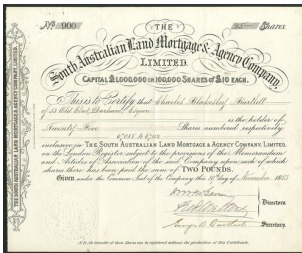 No 900
25 Shares.
THE
South Australian Land Mortgage & Agency Company,
LIMITED.
CAPITAL £1,000,000 IN 100,000 SHARES OF £10 EACH.
This is to Certify that Charles Blakesley Bartlett
of 53 Old Broad Street London Esquire
is the holder of
Twenty Five Shares numbered respectively
inclusive in THE SOUTH AUSTRALIAN LAND MORTGAGE & AGENCY COMPANY, LIMITED.
on the London Register subject to the provisions of the Memorandum
and Articles of Association of the said Company upon each of which
shares there has been paid the sum of TWO POUNDS.
Given under the Common Seal of the Company this day of November
Directors
Secretary.
N.B. No transfer of these Shares can be registered without the production of this Certificate.